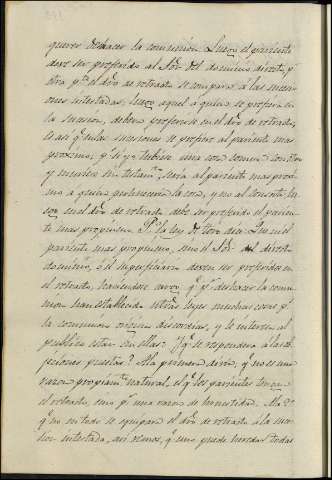 querer deshacer la comunion. Luego el pariente
debe ser preferido al Sor. del dominio directo, y
otra pte. el dro de retracto se compara á las succes
iones intestadas; luego aquel á quien se prefiera en
la sucesion, debera preferirse en el dro de retracto,
Es asi que en las sucesiones se prefiere al pariente mas
proximo; pr. si yo tubiese una cosa comun con otro
y muriese sin testamto, sería al pariente mas proxi
mo á quien perteneceria la cosa, y no al consorte, lue
go en el dro de retracto debe ser preferido el parien
te mas propincuo. Pr. la ley de toro
pariente mas propincuo, sino el Sor. del directo
dominio, ó el superficiario deven ser preferidos en
el retracto, haviendose qe. pa. deshacer la comu
nion han establecido otras leyes muchas cosas pr.
la comunion origina discordias, y le interesa al
publico estar sin ellas? ¿Y qe. se respondera á las ob
jeciones puestas? Ala primera diria, qe. no es una
razon propiamte. natural, el qe. los parientes tengan
el retracto, sino pr. una razon de honestidad. Ala 2a.
qe. no en todo se equipara el dro de retracto á la suce
sion intestada, asi vemos, qe. uno puede heredar todas